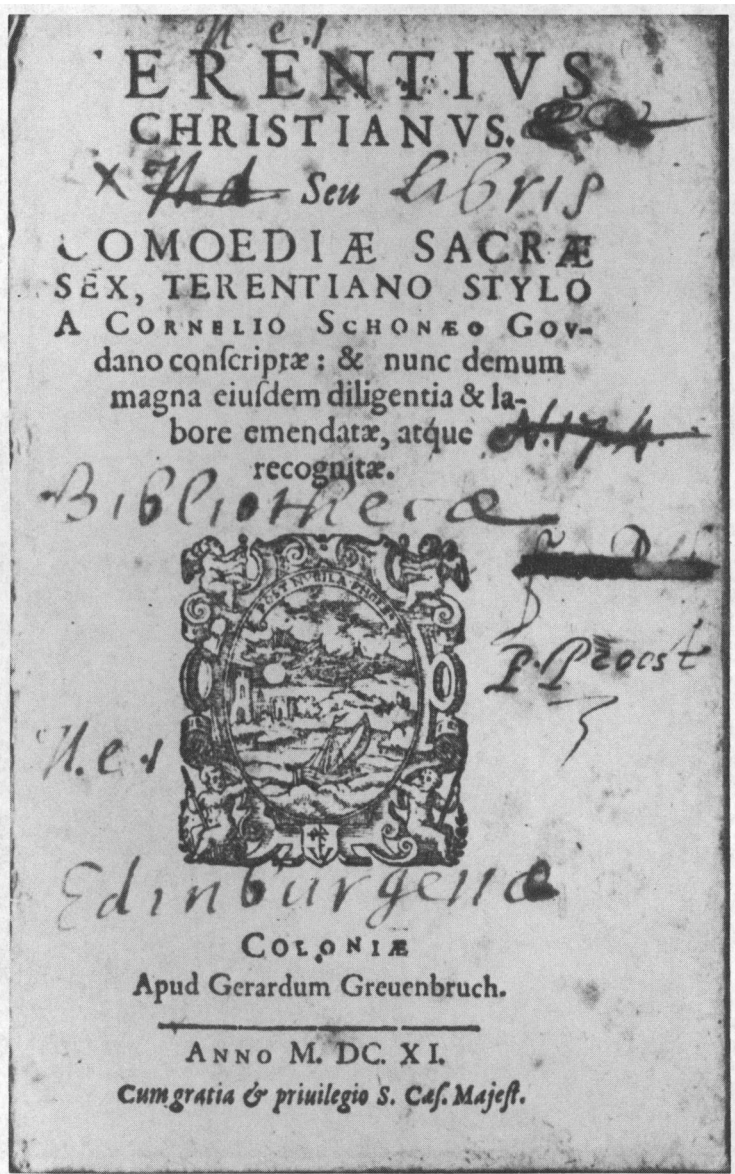 N.e.1
ERENTIVS
CHRISTIANVS.
X Seu Libris
COMOEDIÆ SACRÆ
SEX, TERENTIANO STYLO
A CORNELIO SCHONÆO GOV-
dano conſcriptæ: & nunc demum
magna eiuſdem diligentia & la-
bore emendatæ, atque N.174.
recognitæ.
Bibliothecæ
POST NVBILA PHOEBVS
P. Proost
N.e.1
Edinburgenæ
COLONIÆ
Apud Gerardum Greuenbruch.
ANNO M. DC. XI.
Cum gratia & priuilegio S. Cæſ. Majeſt.